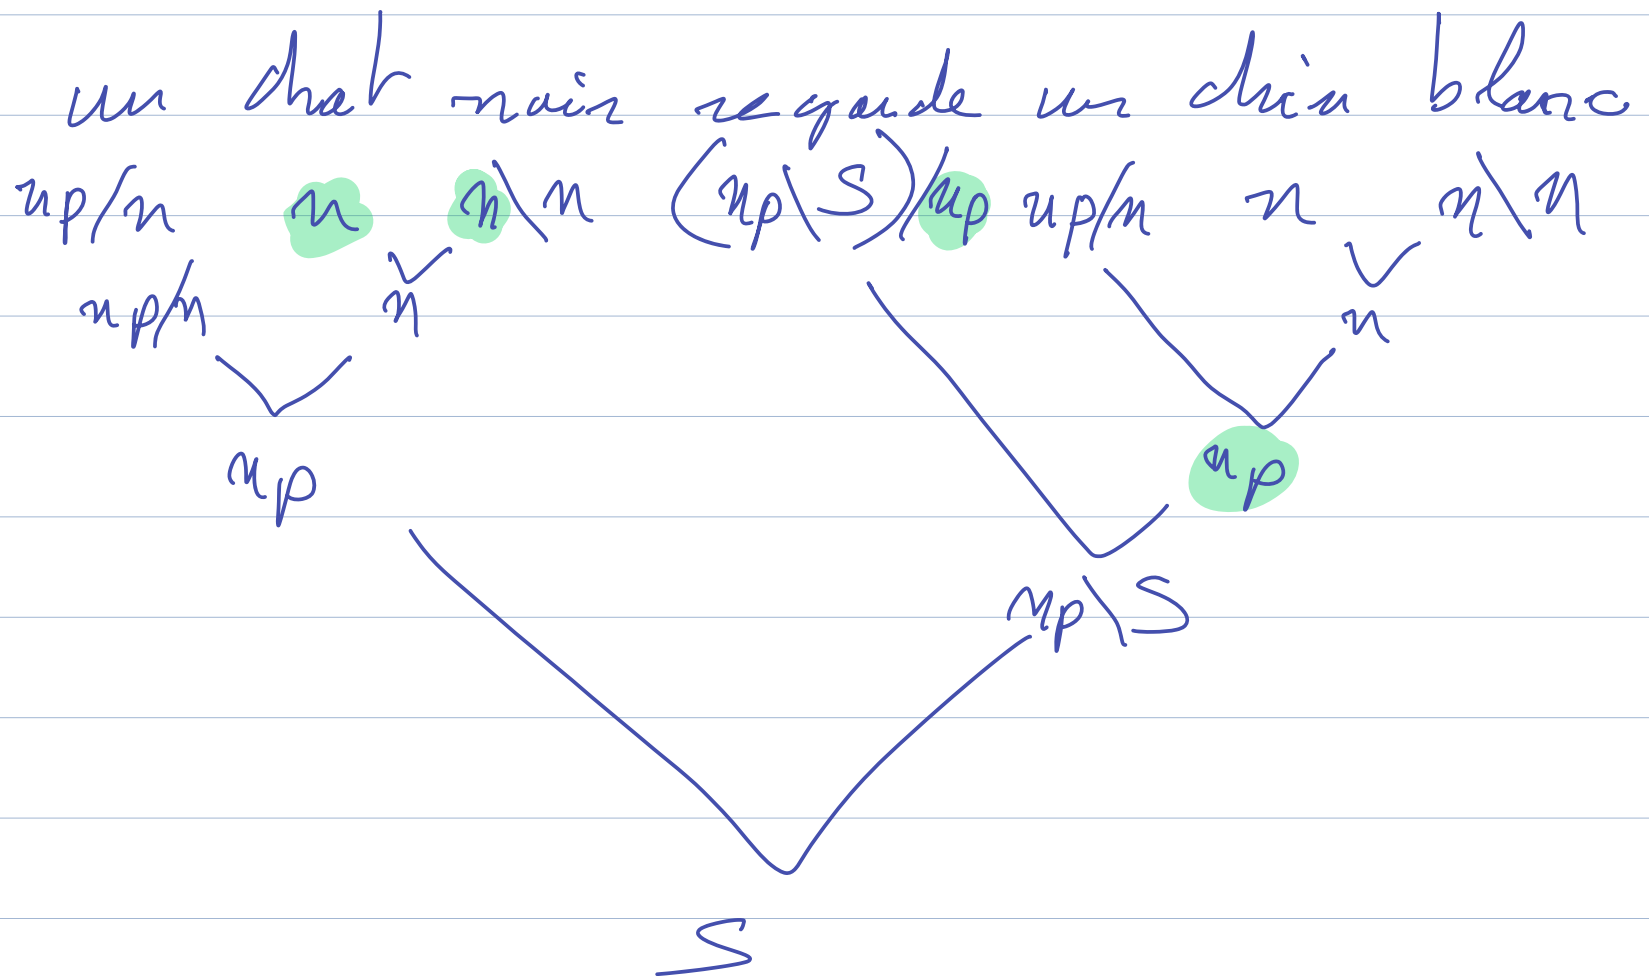 un chat noir regarde un chien blanc
np/n n n\n (np\S)/np np/n n n\n
np/n n n
np np
np\S
S